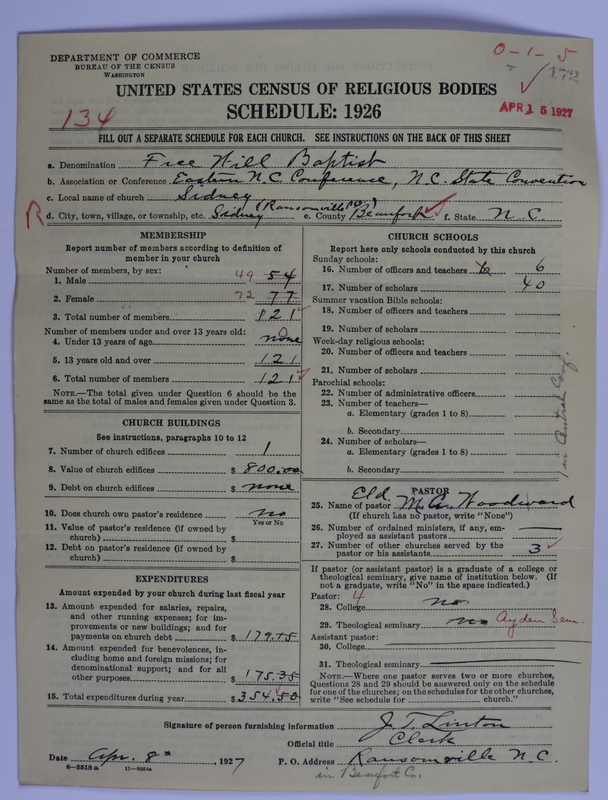 DEPARTMENT OF COMMERCE
BUREAU OF THE CENSUS
WASHINGTON
0-1-5
172
UNITED STATES CENSUS OF RELIGIOUS BODIES
SCHEDULE: 1926
APR 15 1927
134
FILL OUT A SEPARATE SCHEDULE FOR EACH CHURCH. SEE INSTRUCTIONS ON THE BACK OF THIS SHEET
a. Denomination Free Will Baptist
b. Association or Conference Eastern N.C. Conference, N.C. State Convention
c. Local name of church Sidney
R d. City, town, village, or township, etc. Sidney (Ransomville PO) e. County Beaufort f. State N.C.
MEMBERSHIP
Report number of members according to definition of member in your church
Number of members, by sex:
1. Male 49 54
2. Female 72 77
3. Total number of members 121
Number of members under and over 13 years old:
4. Under 13 years of age none
5. 13 years old and over 121
6. Total number of members 121
NOTE.—The total given under Question 6 should be the
same as the total of males and females given under Question 3.
CHURCH BUILDINGS
See instructions, paragraphs 10 to 12
7. Number of church edifices 1
8. Value of church edifices $ 800.00
9. Debt on church edifices $ none
10. Does church own pastor's residence no
Yes or No
11. Value of pastor's residence (if owned by
church) $
12. Debt on pastor's residence (if owned by
church) $
EXPENDITURES
Amount expended by your church during last fiscal year
13. Amount expended for salaries, repairs,
and other running expenses; for im-
provements or new buildings; and for
payments on church debt $ 179.15
14. Amount expended for benevolences, in-
cluding home and foreign missions; for
denominational support; and for all
other purposes $ 175.35
15. Total expenditures during year $ 354.50
CHURCH SCHOOLS
Report here only schools conducted by this church
Sunday schools:
16. Number of officers and teachers 6
17. Number of scholars 40
Summer vacation Bible schools:
18. Number of officers and teachers
19. Number of scholars
Week-day religious schools:
20. Number of officers and teachers
21. Number of scholars
Parochial schools:
22. Number of administrative officers
23. Number of teachers—
a. Elementary (grades 1 to 8)
b. Secondary
24. Number of scholars—
a. Elementary (grades 1 to 8)
b. Secondary
in Central Conf.
PASTOR
25. Name of pastor Eld. M. A. Woodward
(If church has no pastor, write "None")
26. Number of ordained ministers, if any, em-
ployed as assistant pastors
27. Number of other churches served by the
pastor or his assistants 3
If pastor (or assistant pastor) is a graduate of a college or
theological seminary, give name of institution below. (If
not a graduate, write "No" in the space indicated.)
Pastor: 4
28. College no
29. Theological seminary no Ayden Sem.
Assistant pastor:
30. College
31. Theological seminary
NOTE.—Where one pastor serves two or more churches,
Questions 28 and 29 should be answered only on the schedule
for one of the churches; on the schedules for the other churches,
write "See schedule for church."
Signature of person furnishing information J. T. Linton
Official title Clerk
Date Apr. 8th, 1927 P. O. Address Ransomville N.C.
in Beaufort Co.
6-5518 a